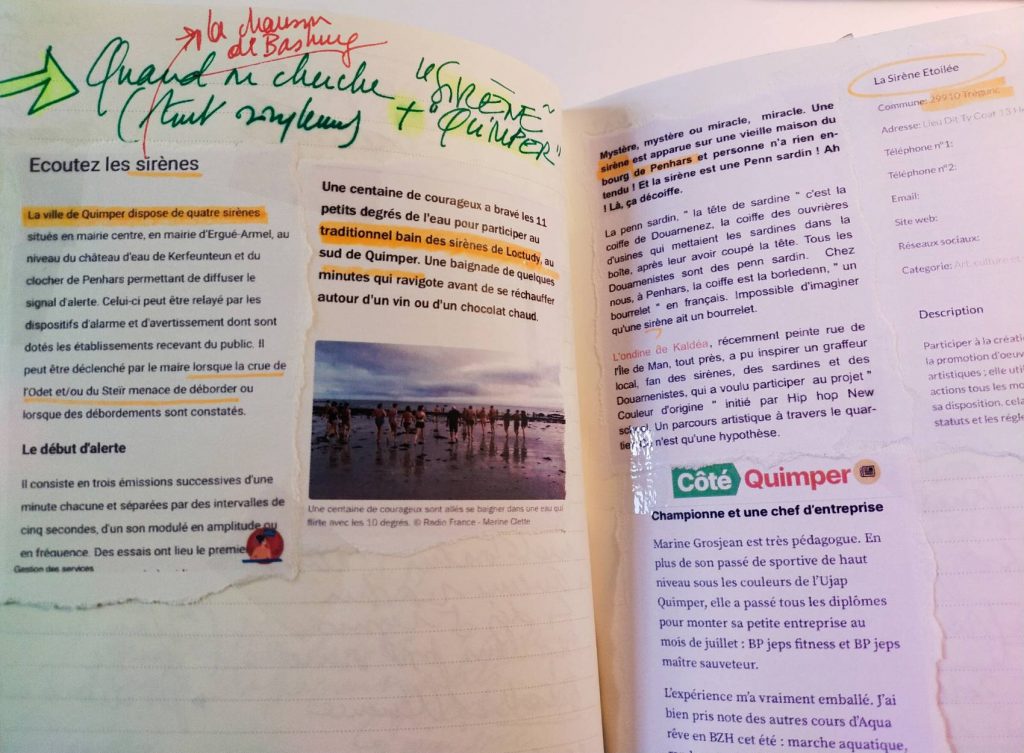 la chanson
de Bashung
Quand on cherche
(tout simplement)
"SIRÈNE"
+ "QUIMPER"
Ecoutez les sirènes
La ville de Quimper dispose de quatre sirènes
situés en mairie centre, en mairie d'Ergué-Armel, au
niveau du château d'eau de Kerfeunteun et du
clocher de Penhars permettant de diffuser le
signal d'alerte. Celui-ci peut être relayé par les
dispositifs d'alarme et d'avertissement dont sont
dotés les établissements recevant du public. Il
peut être déclenché par le maire lorsque la crue de
l'Odet et/ou du Steïr menace de déborder ou
lorsque des débordements sont constatés.
Le début d'alerte
Il consiste en trois émissions successives d'une
minute chacune et séparées par des intervalles de
cinq secondes, d'un son modulé en amplitude ou
en fréquence. Des essais ont lieu le premier
Gestion des services
Une centaine de courageux a bravé les 11
petits degrés de l'eau pour participer au
traditionnel bain des sirènes de Loctudy, au
sud de Quimper. Une baignade de quelques
minutes qui ravigote avant de se réchauffer
autour d'un vin ou d'un chocolat chaud.
Une centaine de courageux sont allés se baigner dans une eau qui
flirte avec les 10 degrés. © Radio France - Marine Clette
Mystère, mystère ou miracle, miracle. Une
sirène est apparue sur une vieille maison du
bourg de Penhars et personne n'a rien en-
tendu ! Et la sirène est une Penn sardin ! Ah
! Là, ça décoiffe.
La penn sardin, " la tête de sardine " c'est la
coiffe de Douarnenez, la coiffe des ouvrières
d'usines qui mettaient les sardines dans la
boîte, après leur avoir coupé la tête. Tous les
Douarnenistes sont des penn sardin. Chez
nous, à Penhars, la coiffe est la borledenn, " un
bourrelet " en français. Impossible d'imaginer
qu'une sirène ait un bourrelet.
L'ondine de Kaldéa, récemment peinte rue de
l'Île de Man, tout près, a pu inspirer un graffeur
local, fan des sirènes, des sardines et des
Douarnenistes, qui a voulu participer au projet "
Couleur d'origine " initié par Hip hop New
school. Un parcours artistique à travers le quar-
tier. Ce n'est qu'une hypothèse.
Côté Quimper
Championne et une chef d'entreprise
Marine Grosjean est très pédagogue. En
plus de son passé de sportive de haut
niveau sous les couleurs de l'Ujap
Quimper, elle a passé tous les diplômes
pour monter sa petite entreprise au
mois de juillet : BP jeps fitness et BP jeps
maître sauveteur.
L'expérience m'a vraiment emballé. J'ai
bien pris note des autres cours d'Aqua
rêve en BZH cet été : marche aquatique,
La Sirène Etoilée
Commune: 29910 Trégunc
Adresse: Lieu Dit Ty Coat 13 H
Téléphone n°1:
Téléphone n°2:
Email:
Site web:
Réseaux sociaux:
Categorie: Art, culture et
Description
Participer à la créati
la promotion d'oeuv
artistiques ; elle util
actions tous les mo
sa disposition, cela
statuts et les règle